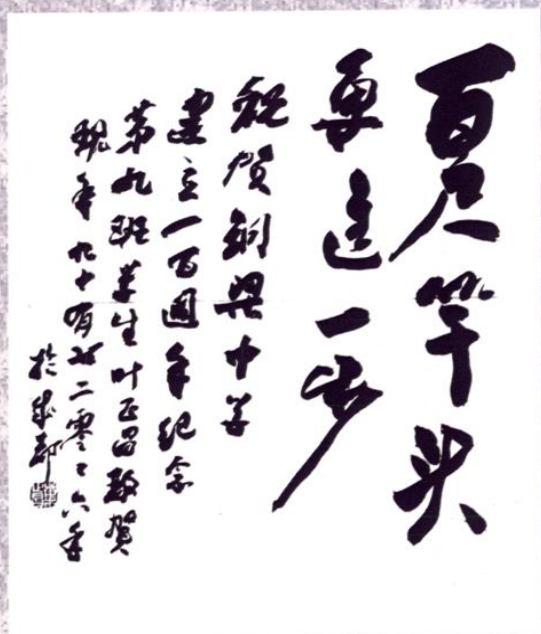 百尺竿头
更进一步
祝贺铜梁中学
建立一百周年纪念
第九班学生叶正昌敬贺
现年九十有 二零零六年
於成都